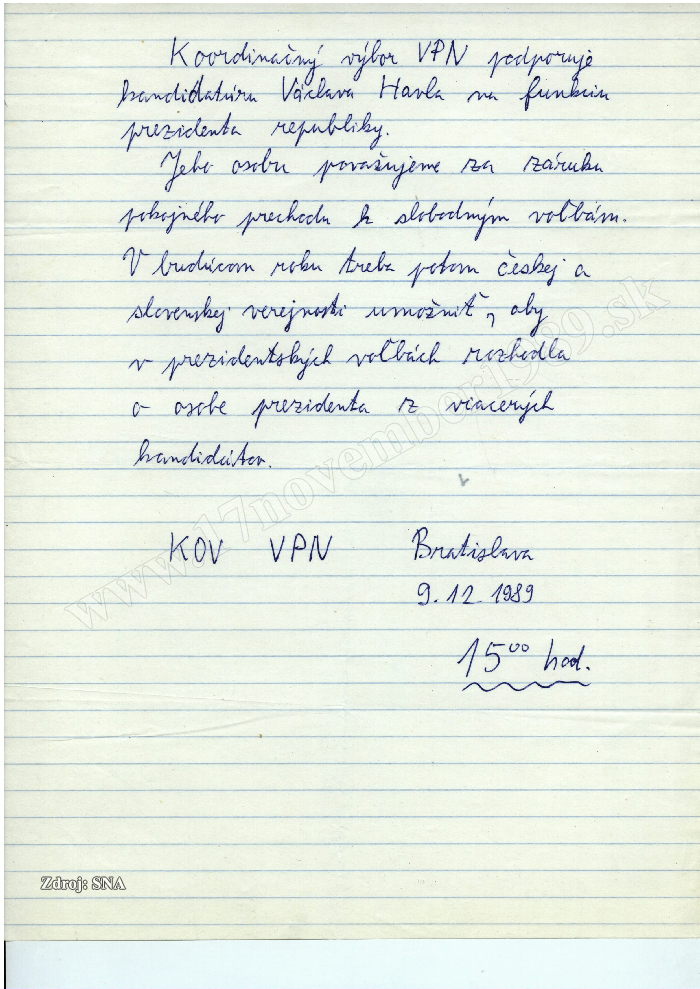 Koordinačný výbor VPN podporuje
kandidatúru Václava Havla na funkciu
prezidenta republiky.
Jeho osobu považujeme za záruku
pokojného prechodu k slobodným voľbám.
V budúcom roku treba potom českej a
slovenskej verejnosti umožniť, aby
v prezidentských voľbách rozhodla
o osobe prezidenta z viacerých
kandidátov.
KOV VPN Bratislava
9.12.1989
15⁰⁰ hod.
www.17november1989.sk
Zdroj: SNA